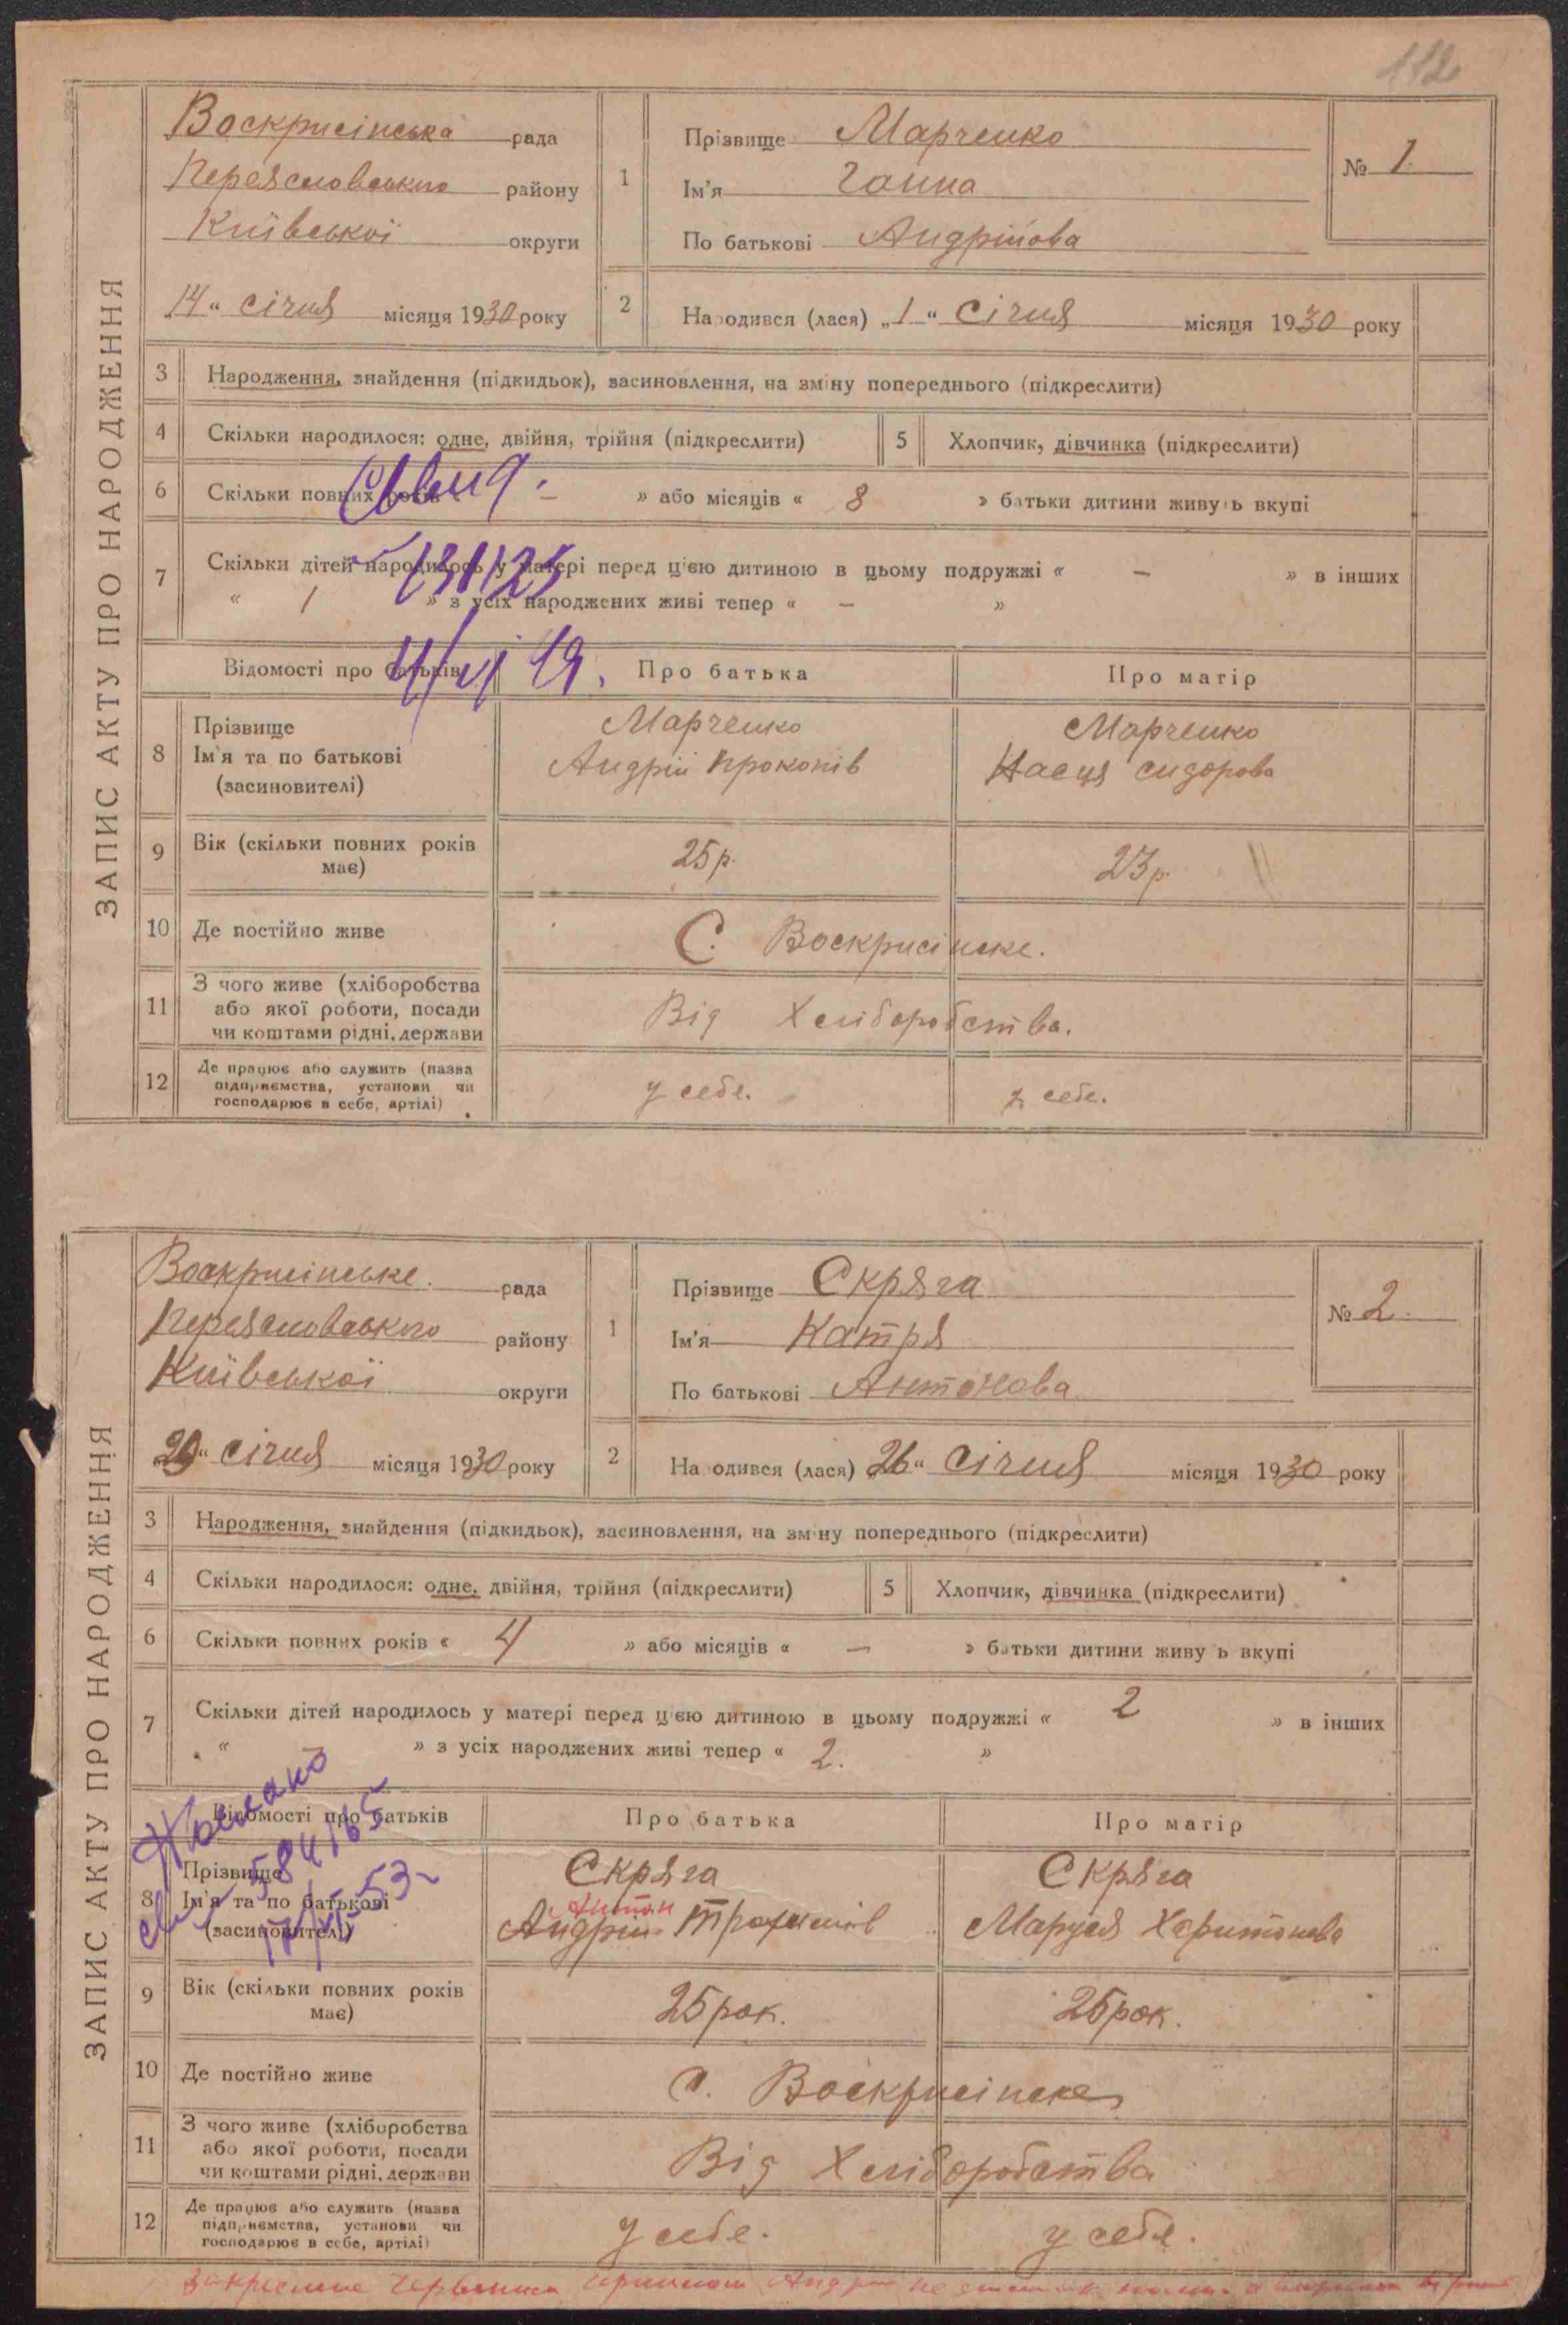 112
ЗАПИС АКТУ ПРО НАРОДЖЕННЯ
Воскрисінська рада
Переясловського району
Київської округи
14 " січня місяця 1930 року
1
Прізвище Марченко
Ім'я Ганна
По батькові Андрійова
№ 1.
2 Народився (лася) „1" січня місяця 1930 року
3 Народження, знайдення (підкидьок), засиновлення, на зміну попереднього (підкреслити)
4 Скільки народилося: одне, двійня, трійня (підкреслити) 5 Хлопчик, дівчинка (підкреслити)
6 Скільки повних років – » або місяців « 8 » батьки дитини живуть вкупі
7 Скільки дітей народилось у матері перед цією дитиною в цьому подружжі « – » в інших
« 1 » з усіх народжених живі тепер « – »
Відомості про батьків Про батька Про матір
8 Прізвище
Ім'я та по батькові
(засиновителі)
Марченко
Андрій Прокопів
Марченко
Насця Сидорова
9 Вік (скільки повних років має) 25 р. 23 р.
10 Де постійно живе С. Воскрисінське.
11 З чого живе (хліборобства
або якої роботи, посади
чи коштами рідні, держави
Від Хліборобства.
12 Де працює або служить (назва
підприємства, установи чи
господарює в себе, артілі)
у себе. у себе.
ЗАПИС АКТУ ПРО НАРОДЖЕННЯ
Воскрисінське. рада
Переясловського району
Київської округи
29 " січня місяця 1930 року
1
Прізвище Скряга
Ім'я Катря
По батькові Антонова
№ 2.
2 Народився (лася) 26 " січня місяця 1930 року
3 Народження, знайдення (підкидьок), засиновлення, на зміну попереднього (підкреслити)
4 Скільки народилося: одне, двійня, трійня (підкреслити) 5 Хлопчик, дівчинка (підкреслити)
6 Скільки повних років « 4 » або місяців « – » батьки дитини живуть вкупі
7 Скільки дітей народилось у матері перед цією дитиною в цьому подружжі « 2 » в інших
« – » з усіх народжених живі тепер « 2. »
Відомості про батьків Про батька Про матір
8 Прізвище
Ім'я та по батькові
(засиновителі)
Скряга
Антон
Андрій Трохимів
Скряга
Маруся Харитонова
9 Вік (скільки повних років має) 25 рок. 25 рок.
10 Де постійно живе С. Воскрисінске
11 З чого живе (хліборобства
або якої роботи, посади
чи коштами рідні, держави
Від Хліборобства
12 Де працює або служить (назва
підприємства, установи чи
господарює в себе, артілі)
у себе. у себе.